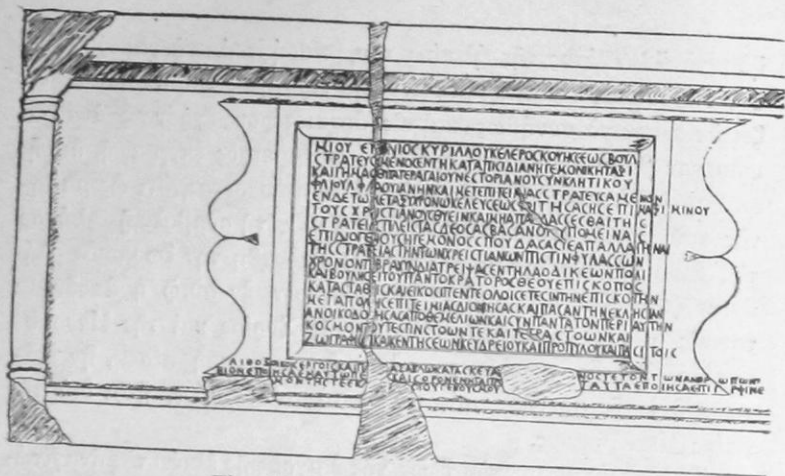 ΜΙΟΥ ΕΥ ΝΙΟΣΚΥΡΙΛΛΟΥΚΕΛΕΡΟΣΚΟΥΗΣΣΕΩΣΒΟΥΛ
ΣΤΡΑΤΕΥΣ ΜΕΝΟΣΕΝΤΗΚΑΤΑΠΙΣΙΔΙΑΝΗΓΕΜΟΝΙΚΗΤΑΞΙ
ΚΑΙΓΗΜΑΣ ΘΥΓΑΤΕΡΑΓΑΙΟΥΝΕΣΤΟΡΙΑΝΟΥΣΥΝΚΛΗΤΙΚΟΥ
ΦΛΙΟΥΛΦΛΑΟΥΙΑΝΗΝΚΑΙΜΕΤΕΠΙΤΕΙΜΙΑΣΣΤΡΑΤΕΥΣΑΜΕΝΟΣ
ΕΝΔΕΤΩ ΜΕΤΑΞΥΧΡΟΝΩΚΕΛΕΥΣΕΩΣ ΟΙΤΗΣΑΣΗΣΕΠΙΜΑΞΙΜΙΝΟΥ
ΤΟΥΣΧΡΙΣΤΙΑΝΟΥΣΘΥΕΙΝΚΑΙΜΗΑΠΑΛΛΑΣΣΕΣΘΑΙΤΗΣ
ΣΤΡΑΤΕΙΑΣΠΛΕΙΣΤΑΣΔΕΟΣΑΣΒΑΣΑΝΟΥΣΥΠΟΜΕΙΝΑΣ
ΕΠΙΔΙΟΓΕΝΟΥΣΗΓΕΜΟΝΟΣΣΠΟΥΔΑΣΑΣΤΕΑΠΑΛΛΑΓΗΝΑΙ
ΤΗΣΣΤΡΑΤΕΙΑΣΤΗΝΤΩΝΧΡΕΙΣΤΙΑΝΩΝΠΙΣΤΙΝΦΥΛΑΣΣΩΝ
ΧΡΟΝΟΝΤΕΒΡΑΧΥΝΔΙΑΤΡΕΙΨΑΣΕΝΤΗΛΑΟΔΙΚΕΩΝΠΟΛΙ
ΚΑΙΒΟΥΛΗΣΕΙΤΟΥΠΑΝΤΟΚΡΑΤΟΡΟΣΘΕΟΥΕΠΙΣΚΟΠΟΣ
ΚΑΤΑΣΤΑΘΕΙΣΚΑΙΕΙΚΟΣΙΠΕΝΤΕΟΛΟΙΣΕΤΕΣΙΝΤΗΝΕΠΙΣΚΟΠΗΝ
ΜΕΤΑΠΟΛΛΗΣΕΠΙΤΕΙΜΙΑΣΔΙΟΙΚΗΣΑΣΚΑΙΠΑΣΑΝΤΗΝΕΚΛΗΣΙΑΝ
ΑΝΟΙΚΟΔΟΜΗΣΑΣΑΠΟΘΕΜΕΛΙΩΝΚΑΙΣΥΝΠΑΝΤΑΤΟΝΠΕΡΙΑΥΤΗΝ
ΚΟΣΜΟΝΤΟΥΤΕΣΤΙΝΣΤΟΩΝΤΕΚΑΙΤΕΤΡΑΣΤΟΩΝΚΑΙ
ΖΩΓΡΑΦΙΩΝΚΑΙΚΕΝΤΗΣΕΩΝΚΕΥΔΡΕΙΟΥΚΑΙΠΡΟΠΥΛΟΥΚΑΙΠΑΣΙΤΟΙΣ